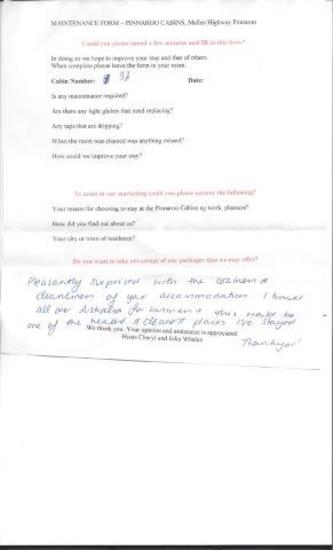 MAINTENANCE FORM – PINNAROO CABINS, Mallee Highway Pinnaroo
Could you please spend a few minutes and fill in this form?
In doing so we hope to improve your stay and that of others.
When complete please leave the form in your room.
Cabin Number: 37 Date:
Is any maintenance required?
Are there any light globes that need replacing?
Any taps that are dripping?
When the room was cleaned was anything missed?
How could we improve your stay?
To assist in our marketing could you please answer the following?
Your reason for choosing to stay at the Pinnaroo Cabins eg work, pleasure?
How did you find out about us?
Your city or town of residence?
Do you want to take advantage of any packages that we may offer?
Pleasantly surprised with the
cleanliness of your accommodation I travel
all over Australia for & this would be
one of the neatest & cleanest places I've stayed
We thank you. Your opinion and assistance is appreciated
Hosts Cheryl and John
Thankyou!